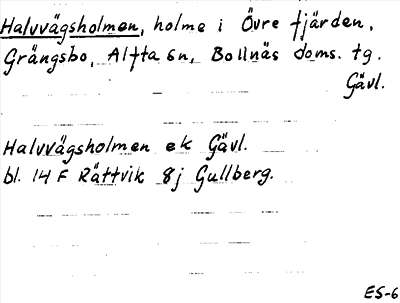 Halvvägsholmen, holme i Övre fjärden,
Grängsbo, Alfta sn, Bollnäs doms. tg.
Gävl.
Halvvägsholmen ek Gävl.
bl. 14 F Rättvik 8j Gullberg.
ES-6